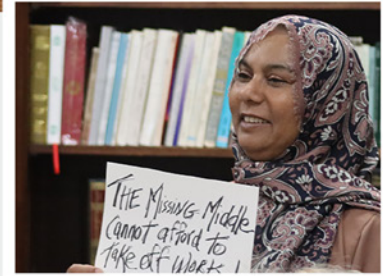 THE MISSING Middle
Cannot afford to
Take off WORK!